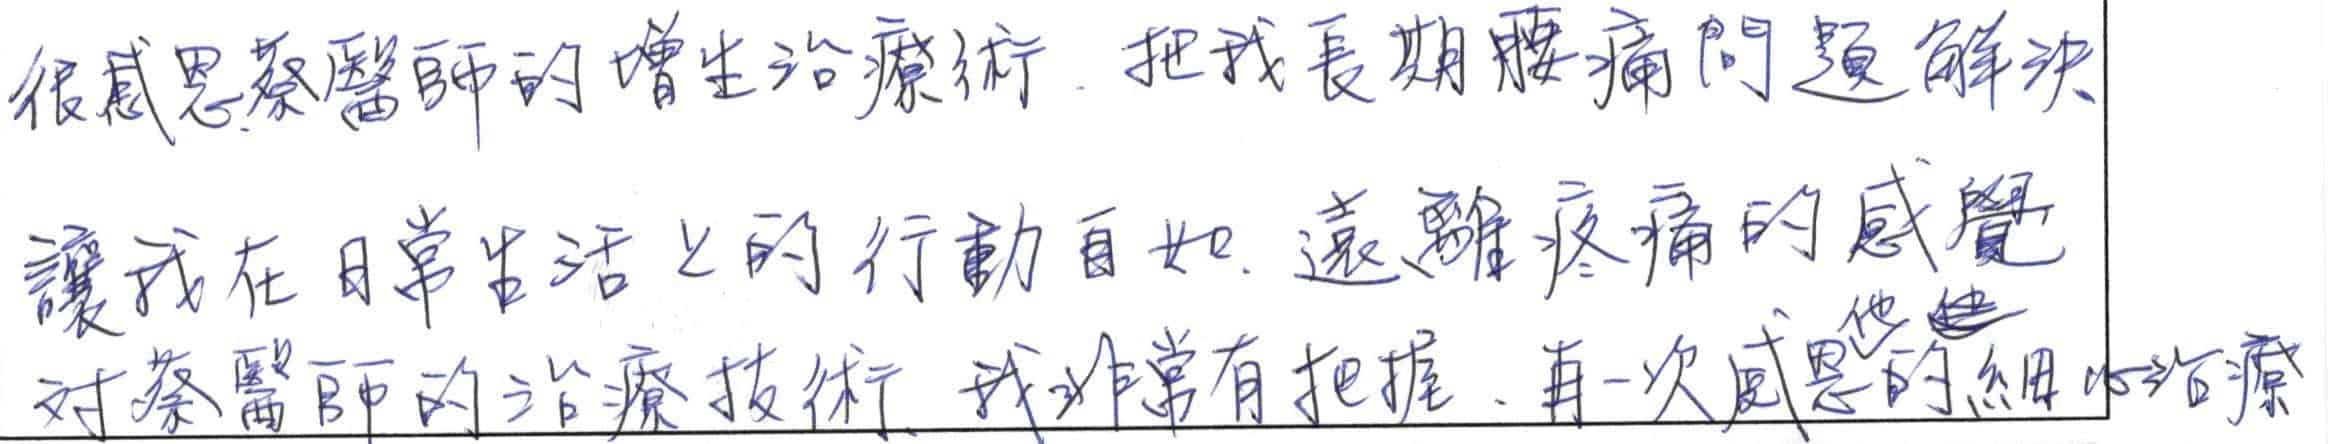 很感恩蔡醫師的增生治療術.把我長期腰痛問題解決
讓我在日常生活上的行動自如.遠離疼痛的感覺
对蔡醫師的治療技術、我非常有把握、再一次感恩他的細心治療